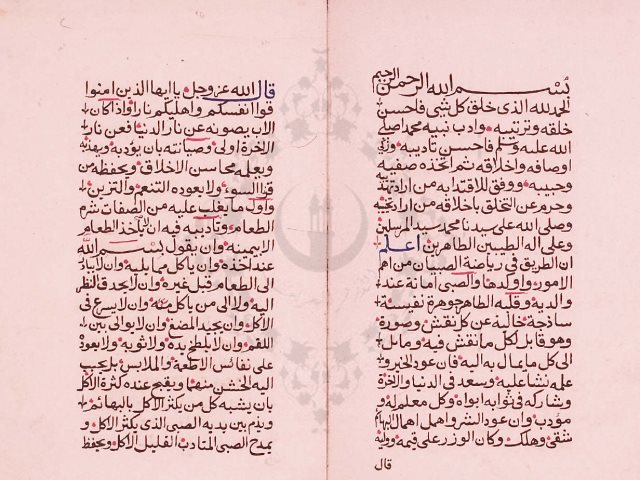 بسم الله الرحمن الرحيم
الحمد لله الذى خلق كل شى فاحسن
خلقه وترتيبه وادب نبيه محمد اصلى
الله عليه وسلم فاحسن تاديبه وزكى
اوصافه واخلاقه ثم اتخذه صفيه
وحبيبه ووفق للاقتدابه من اراد تهذيبه
وحرم عن التخلق باخلاقه من اراد تخييبه
وصلى الله على سيدنا محمد سيد المرسلين
وعلى اله الطيبين الطاهرين اعلم
ان الطريق فى رياضة الصبيان من اهم
الامور واوكدها والصبى امانة عند
والديه وقلبه الطاهر جوهرة نفيسة
ساذجة خالية عن كل نقش وصورة
وهو قابل لكل ما نقش فيه ومائل
الى كل ما يمال به اليه فان عود الخير و
علمه نشا عليه وسعد فى الدنيا والاخرة
وشاركه فى ثوابه ابواه وكل معلم له و
مؤدب وان عود الشر واهمل اهمال البهائم
شقى وهلك وكان الوزر على قيمه ووليه
قال
قال الله عز وجل يا ايها الذين امنوا
قوا انفسكم واهليكم نارا واذا كان
الاب يصونه عن نار الدنيا فعن نار
الاخرة اولى وصيانته بان يؤدبه ويهذبه
ويعلمه محاسن الاخلاق ويحفظه من
قرنا السوء ولا يعوده التنعم والتزين
واول ما يغلب عليه من الصفات شره
الطعام وتاديبه فيه ان لا ياخذ الطعام
الا بيمينه وان يقول بسم الله
عند اخذه وان ياكل مما يليه وان لا يبادر
الى الطعام قبل غيره وان لا يحدق النظر
اليه ولا الى من ياكل معه وان لا يسرع فى
الاكل وان يجيد المضغ وان لا يوالى بين
اللقم وان لا يلطخ يده ولا ثوبه ولا يعوده
على نفائس الاطعمة والملابس بل يحبب
اليه الخشن منهما ويقبح عنده كثرة الاكل
بان يشبه كل من يكثر الاكل بالبهائم
ويذم بين يديه الصبى الذى يكثر الاكل و
يمدح الصبى المتادب القليل الاكل ويحفظ